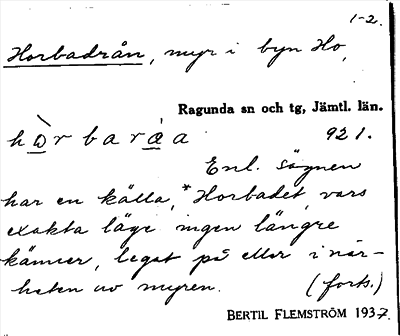 1-2.
Horbadrån, myr i byn Ho,
Ragunda sn och tg, Jämtl. län.
hòrbaràa 921.
Enl. sägnen
har en källa, *Horbadet, vars
exakta läge ingen längre
känner, legat på eller i när-
heten av myren. (forts.)
BERTIL FLEMSTRÖM 1937.